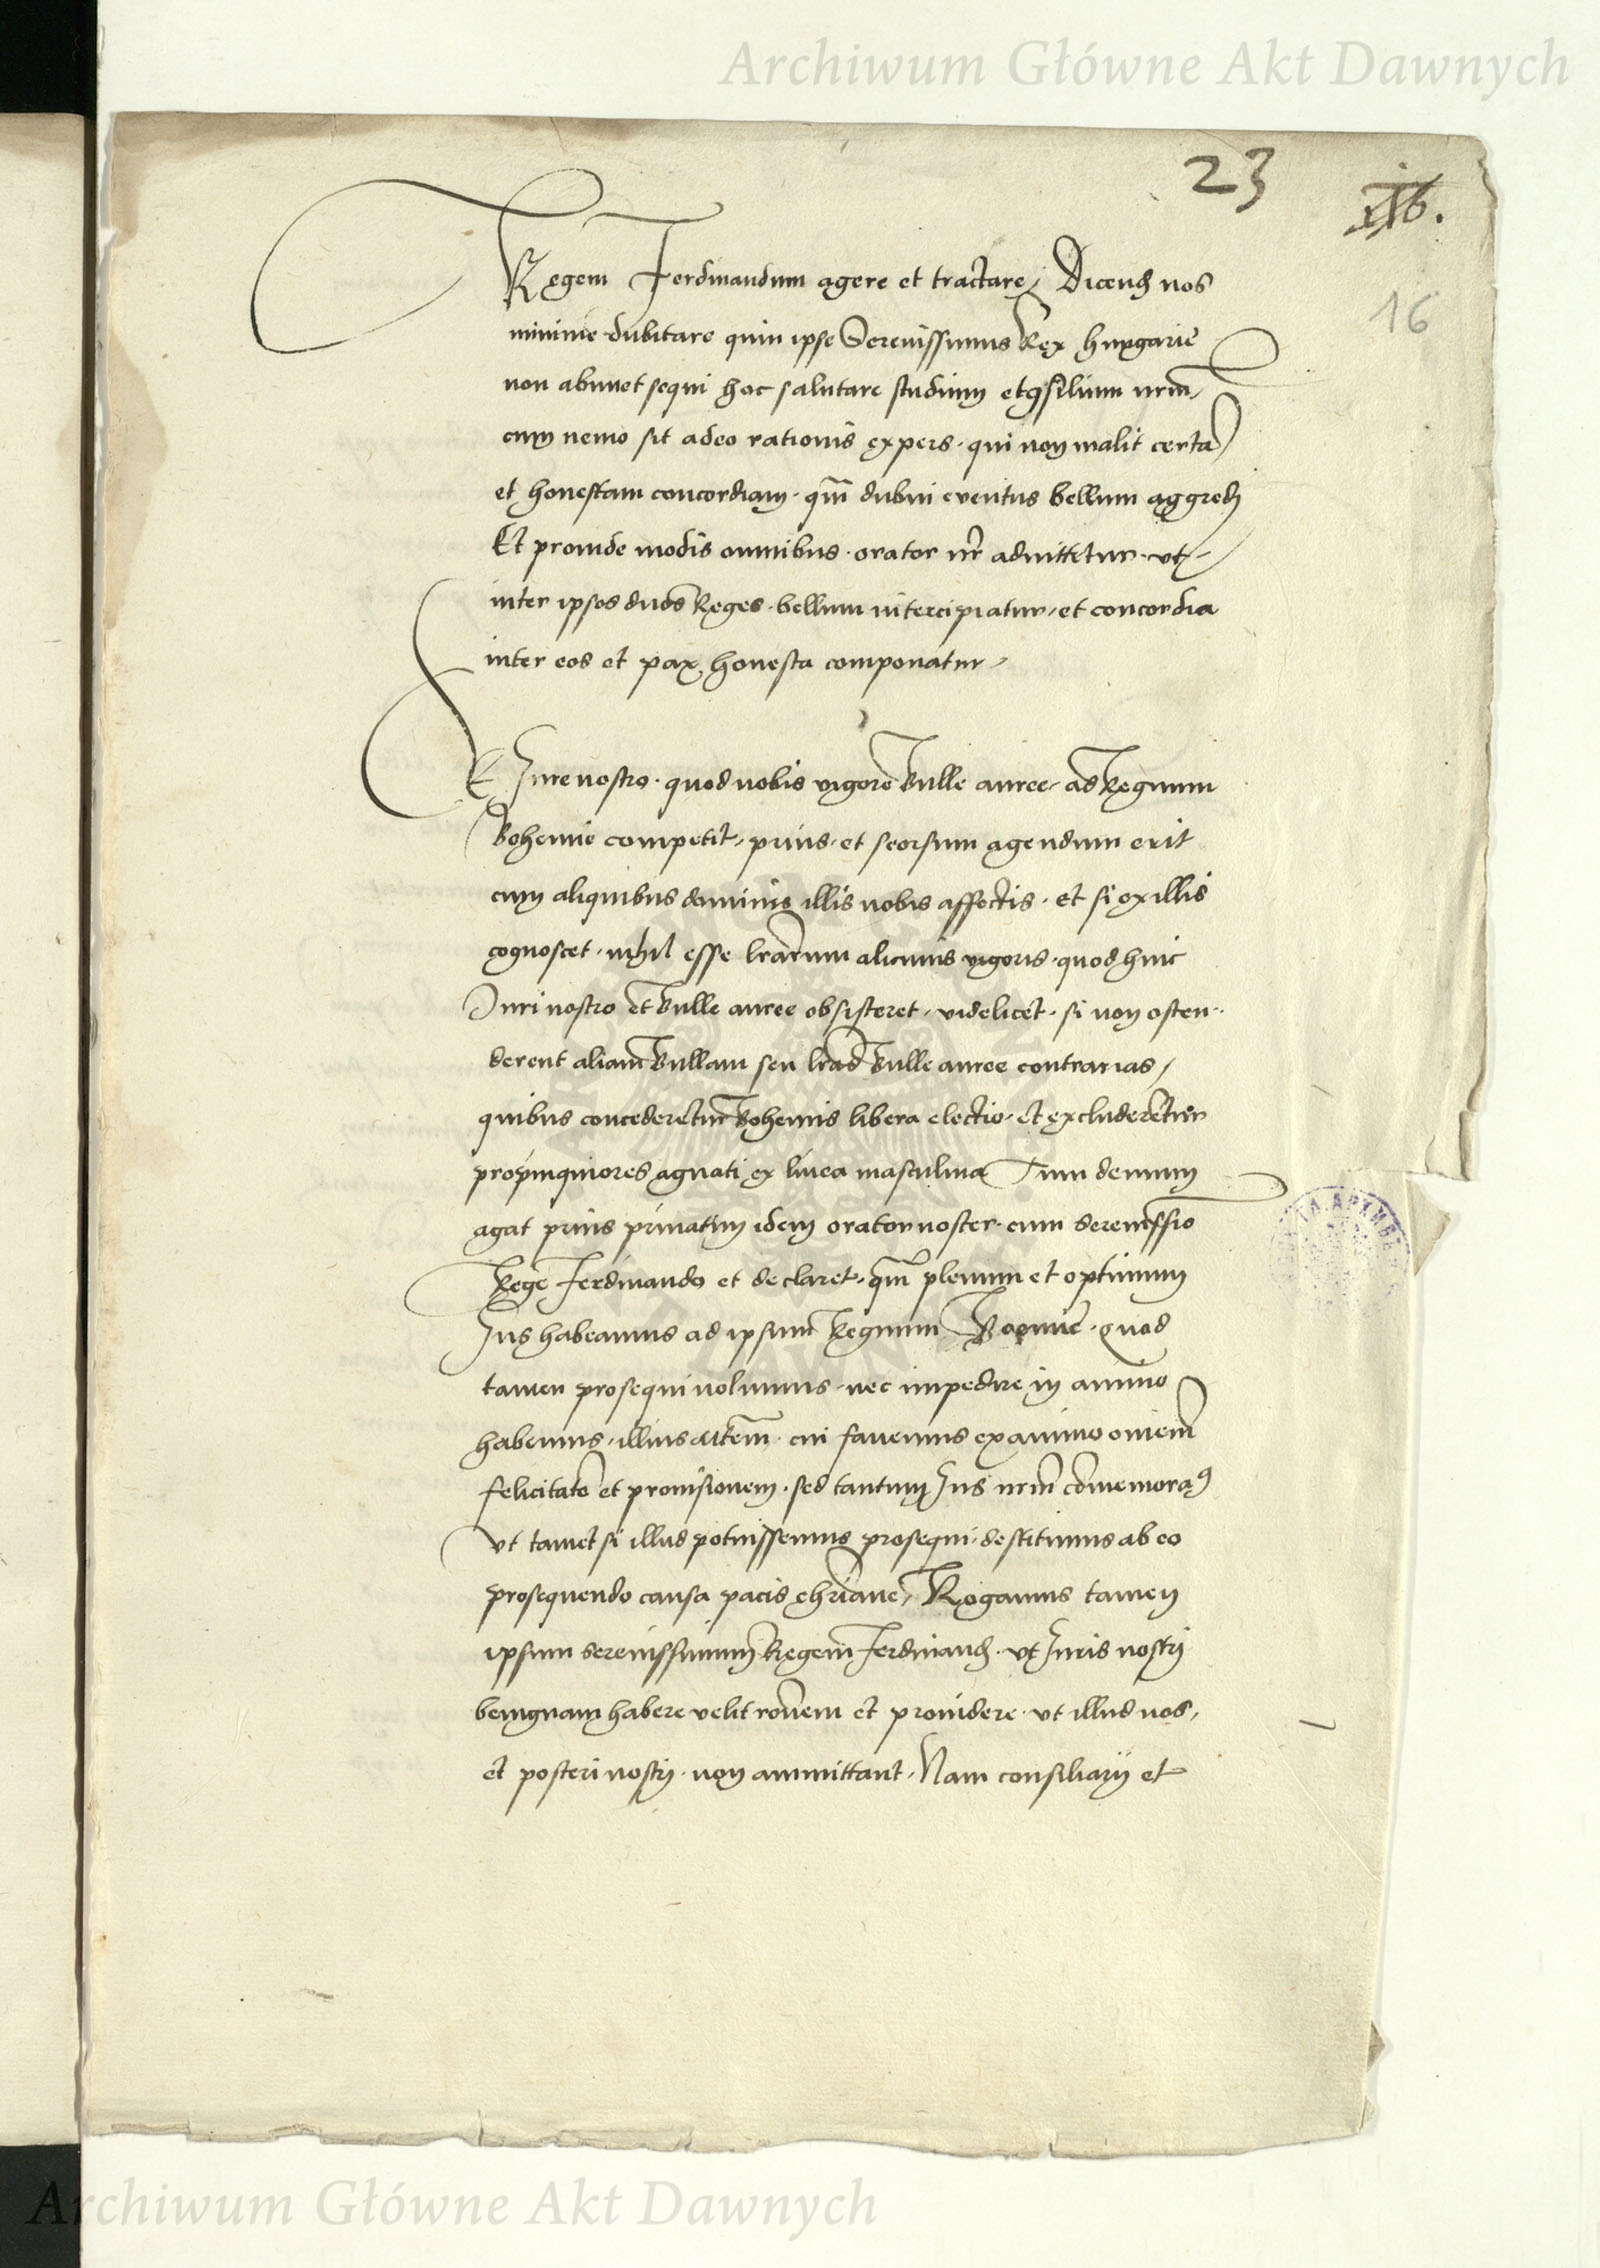 Archiwum Główne Akt Dawnych
23
16
Regem Ferdinandum agere et tractare, Dicend nos
minime dubitare quin ipse Serenissimus Rex Hungarie
non abnuet sequi hoc salutare studium et consilium nrm,
cum nemo sit adeo rationis expers. qui non malit certa
et honestam concordiam. qm dubii eventus bellum aggredi
Et proinde modis omnibus. orator nr adnittetur. ut
inter ipsos duos Reges. bellum intercipiatur, et concordia
inter eos et pax honesta componatur,
Iure nostro. quod nobis vigore Bulle auree, ad Regnum
Bohemie competit, prius. et seorsum agendum erit
cum aliquibus dominis illis nobis affectis. Et si ex illis
cognoscet. nihil esse lrarum alicuius vigoris. quod huic
Iuri nostro et Bulle auree obsisteret, videlicet. si non osten-
derent aliam Bullam seu lras Bulle auree contrarias,
quibus concederetur Bohemis libera electio. et excluderentur
propinquiores agnati ex linea masculina Tum demum
agat prius privatim idem orator noster. cum serenissio
Rege Ferdinando et declaret. qm plenum et optimum
Ius habeamus ad ipsum Regnum Boemie. quod
tamen prosequi nolumus. nec impedire in animo
habemus. illius cui favemus ex animo oniem
felicitate et provisionem. sed tantum Ius nrm comemora
Ut tametsi illud potuissemus prosequi. destitimus ab eo
prosequendo causa pacis christiane, Rogamus tamen
ipsum serenissimum Regem Ferdinand. ut Iuris nostri
benignam habere velit ronem et providere. ut illud nos,
et posteri nostri. non ammittant. Nam consiliarii et
Archiwum Główne Akt Dawnych